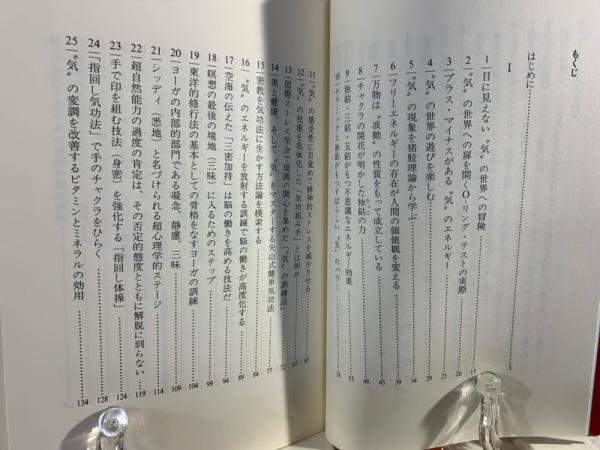 もくじ
はじめに
I
1 目に見えない〝気〟の世界への冒険 15
2 〝気〟の世界への扉を開くO-リング・テストの実際 20
3 プラス・マイナスがある〝気〟のエネルギー 25
4 〝気〟の世界の遊びを楽しむ 29
5 〝気〟の現象を猪股理論から学ぶ 34
6 フリーエネルギーの存在が人間の価値観を変える 59
7 万物は〝波動〟の性質をもって成立している 45
8 チャクラの開花が明かした独鈷の力 49
9 独鈷・三鈷・五鈷がもつ不思議なエネルギー効果 53
10 セラミックス独鈷がもつすばらしい〝気〟のパワー 58
11 〝気〟の感受性に目覚めて精神的ストレスを減少させる 61
12 〝気〟の技術を具体化した「気功組み手」とは何か 65
13 国際ストレス学会で周囲の関心を集めた「〝気〟の訓練法」 72
14 美と健康、そして〝気〟をマスターする矢山式簡単気功法 77
15 密教を気功法に生かす方法論を模索する 84
16 〝気〟のエネルギーを放射する訓練で脳の働きが高度化する 89
17 空海の伝えた「三密加持」は脳の働きを高める技法だ 94
18 瞑想の最後の境地（三昧）に入るためのステップ 99
19 東洋的修行法の基本としての骨格をなすヨーガの訓練 104
20 ヨーガの内部的部門である凝念、静慮、三昧 109
21 シッディ（悉地）と名づけられる超心理学的ステージ 114
22 超自然能力の過度の肯定は、その否定的態度とともに解脱に到らない 119
23 手で印を組む技法（身密）を強化する「指回し体操」 124
24 「指回し気功法」で手のチャクラをひらく 128
25 〝気〟の変調を改善するビタミンとミネラルの効用 134